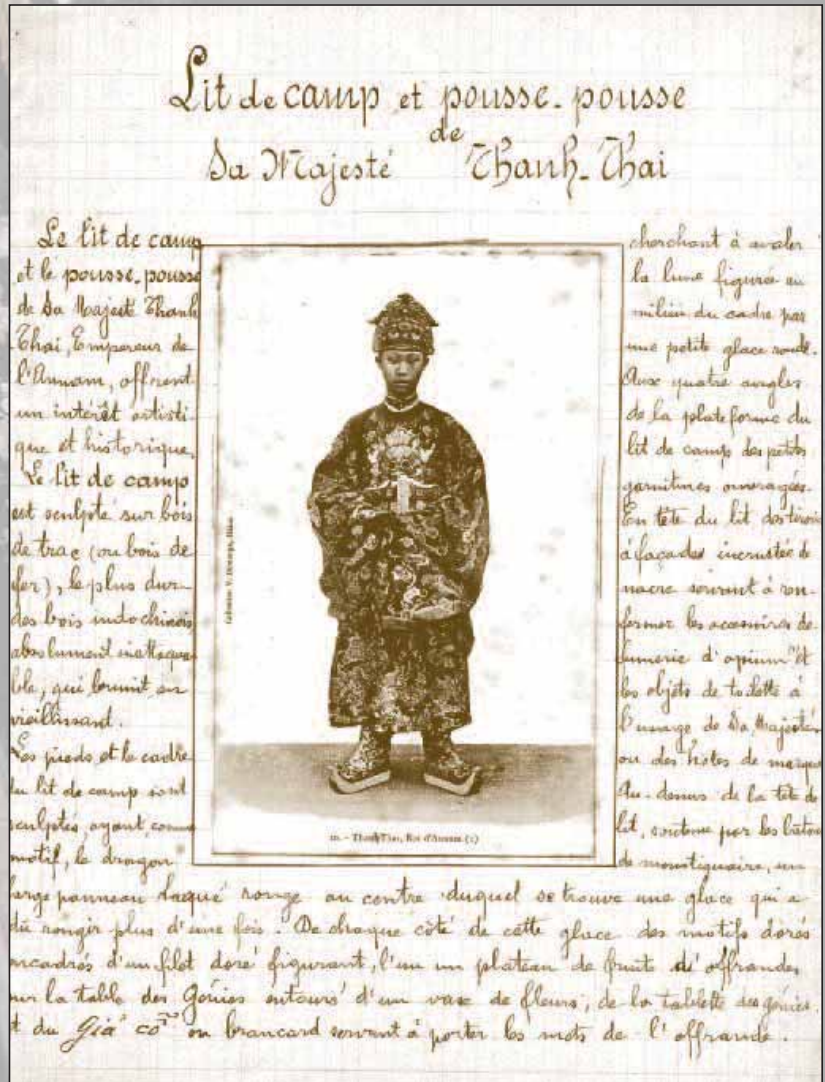 Lit de camp et pousse-pousse
de
Sa Majesté Thanh-Thai
Le lit de camp
et le pousse-pousse
de Sa Majesté Thanh
Thai, Empereur de
l'Annam, offrent
un intérêt artisti-
que et historique.
Le lit de camp
est sculpté sur bois
de trac (ou bois de
fer), le plus dur
des bois indochinois
absolument inattaqua-
ble, qui brunit en
vieillissant.
Les pieds et le cadre
du lit de camp sont
sculptés, ayant comme
motif, le dragon
cherchant à avaler
la lune figurée au
milieu du cadre par
une petite glace ronde.
Aux quatre angles
de la plateforme du
lit de camp des petits
garnitures ouvragées.
En tête du lit des tiroirs
à façades incrustée de
nacre servant à ren-
fermer les accessoires de
fumerie d'opium et
les objets de toilette à
l'usage de Sa Majesté
ou des hôtes de marque
Au-dessus de la tête de
lit, soutenu par les bâtons
de moustiquaire, un
large panneau laqué rouge au centre duquel se trouve une glace qui a
dû rougir plus d'une fois. De chaque côté de cette glace des motifs dorés
encadrés d'un filet doré figurant, l'un un plateau de fruits d'offrandes
sur la table des Génies entouré d'un vase de fleurs, de la tablette des génies,
et du Giá cỗ ou brancard servant à porter les mets de l'offrande.
10. - Thanh-Thai, Roi d'Annam (1)